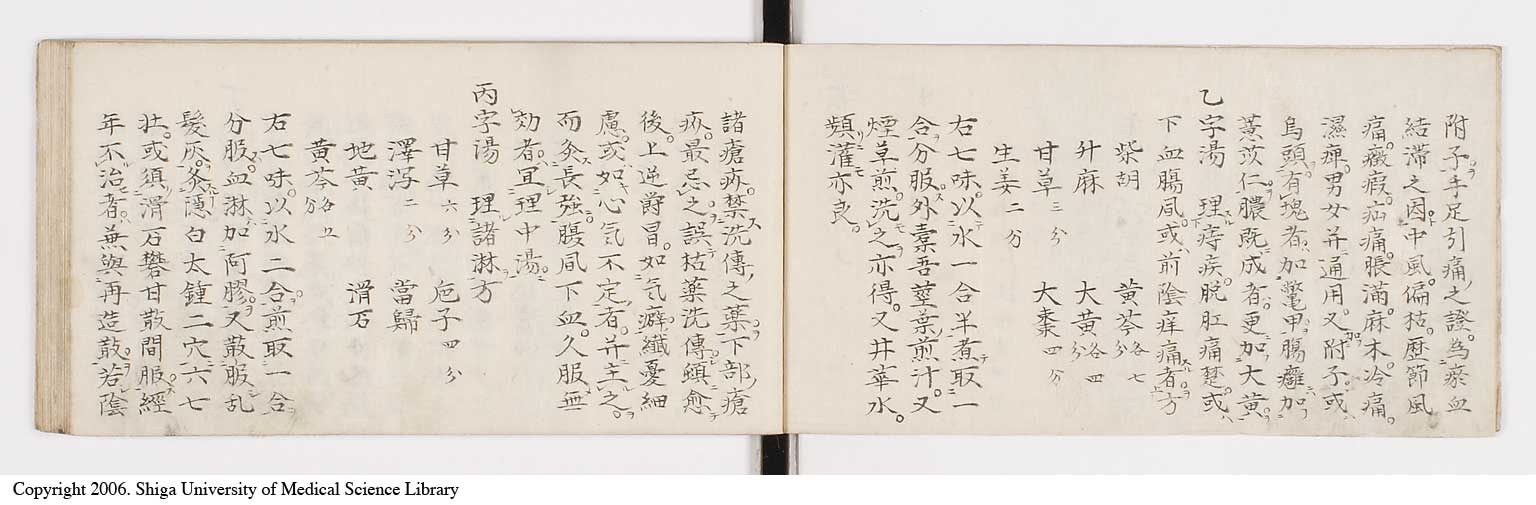 附子手足引痛之證為瘀血
結滞之因中風偏枯歴節風
痛癥瘕疝痛脹滿麻木冷痛
濕痺男女并通用又附子或
烏頭有塊者加鼈甲腸癰加
薏苡仁膿既成者更加大黄
乙字湯 理痔疾脱肛痛楚或
下血腸風或前陰痒痛者方
柴胡 黄芩各七分
升麻 大黄各四分
甘草三分 大棗四分
生姜二分
右七味以水一合半煮取一
合分服外橐吾莖葉煎汁又
煙草煎洗之亦得又井華水
頻灌亦良
諸瘡疾禁洗傳之薬下部瘡
疾最忌之誤枯薬洗傳頓愈
後上逆爵冒如気癖纖憂細
慮或如心気不定者并主之
而灸長強腸風下血久服無
効者宜理中湯
丙字湯 理諸淋方
甘草六分 巵子四分
澤瀉二分 當歸
地黄 滑石
黄芩各五分
右七味以水二合煎取一合
分服血淋加阿膠又散服乱
髪灰灸隠白太鍾二穴六七
壮或須滑石礬甘散間服經
年不治者兼與再造散若陰
Copyright 2006. Shiga University of Medical Science Library